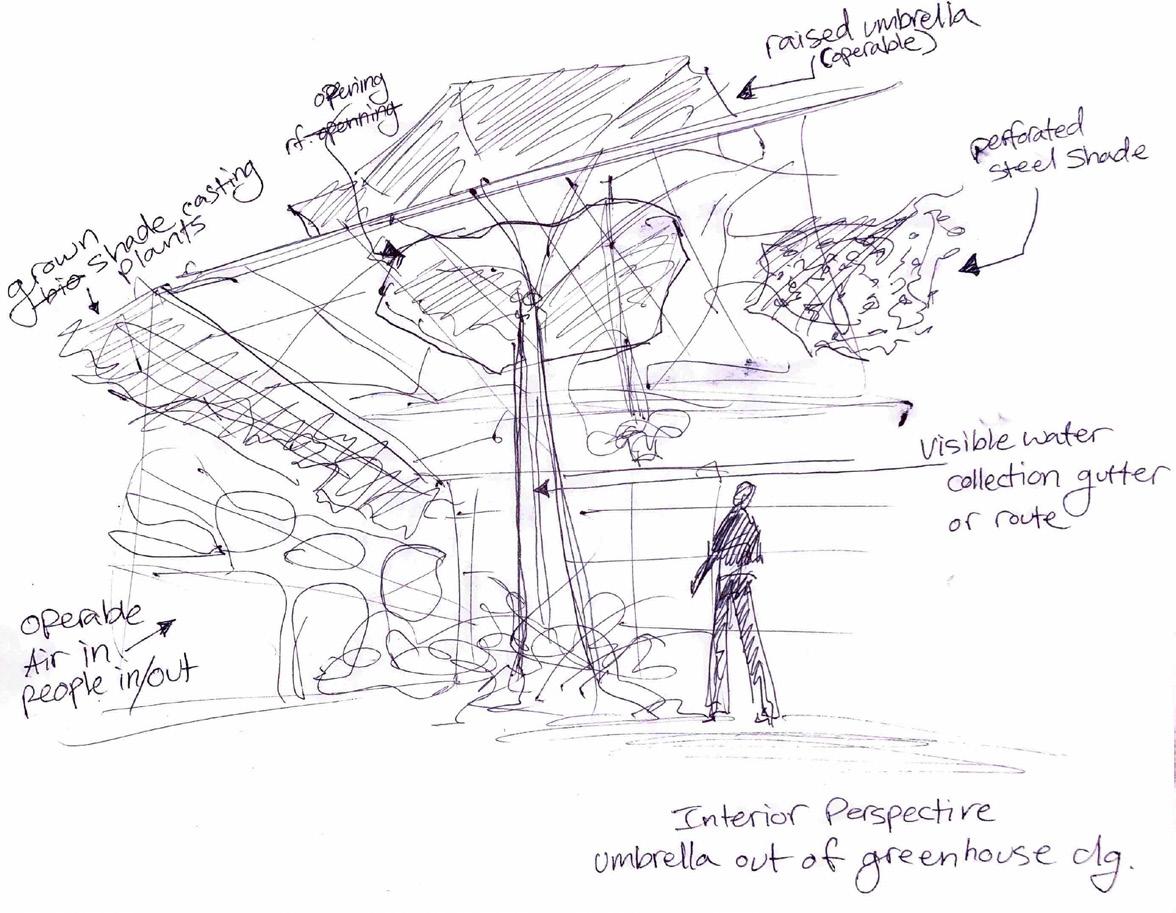 raised umbrella
(operable)
opening
rf. openning
perforated
steel Shade
grown
bio shade casting
plants
visible water
collection gutter
or route
operable
Air in
people in/out
Interior Perspective
umbrella out of greenhouse clg.